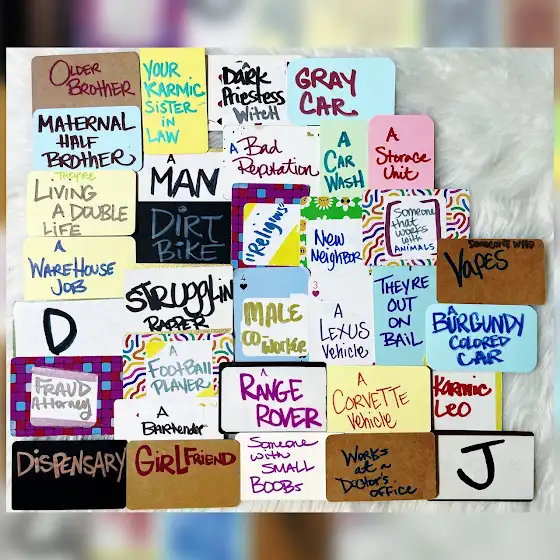 OLDER
BROTHER
YOUR
KARMIC
SISTER
in
LAW
A
DARK
Priestess
Witch
GRAY
CAR
MATERNAL
HALF
BROTHER
A
MAN
A Bad
Reputation
A
CAR
WASH
A
Storage
Unit
THEY'RE
LIVING
A DOUBLE
LIFE
DIRT
BIKE
"Religius"
New
NeighboR
Someone
that
works
with
ANIMALS
Someone who
VAPES
A
WAREHOUSE
JOB
STRUGGLIN
RAPPER
4
MALE
co worker
3
A
LEXUS
Vehicle
THEY'RE
OUT
ON
BAIL
A
BURGUNDY
COLORED
CAR
D
FRAUD
Attorney
A
FOOTBALL
PLAYER
A
RANGE
ROVER
A
CORVETTE
Vehicle
KARMIC
Leo
A
Bartender
DISPENSARY
GIRLFRIEND
Someone
with
SMALL
BOOBS
Works
at a
Doctor's
office
J